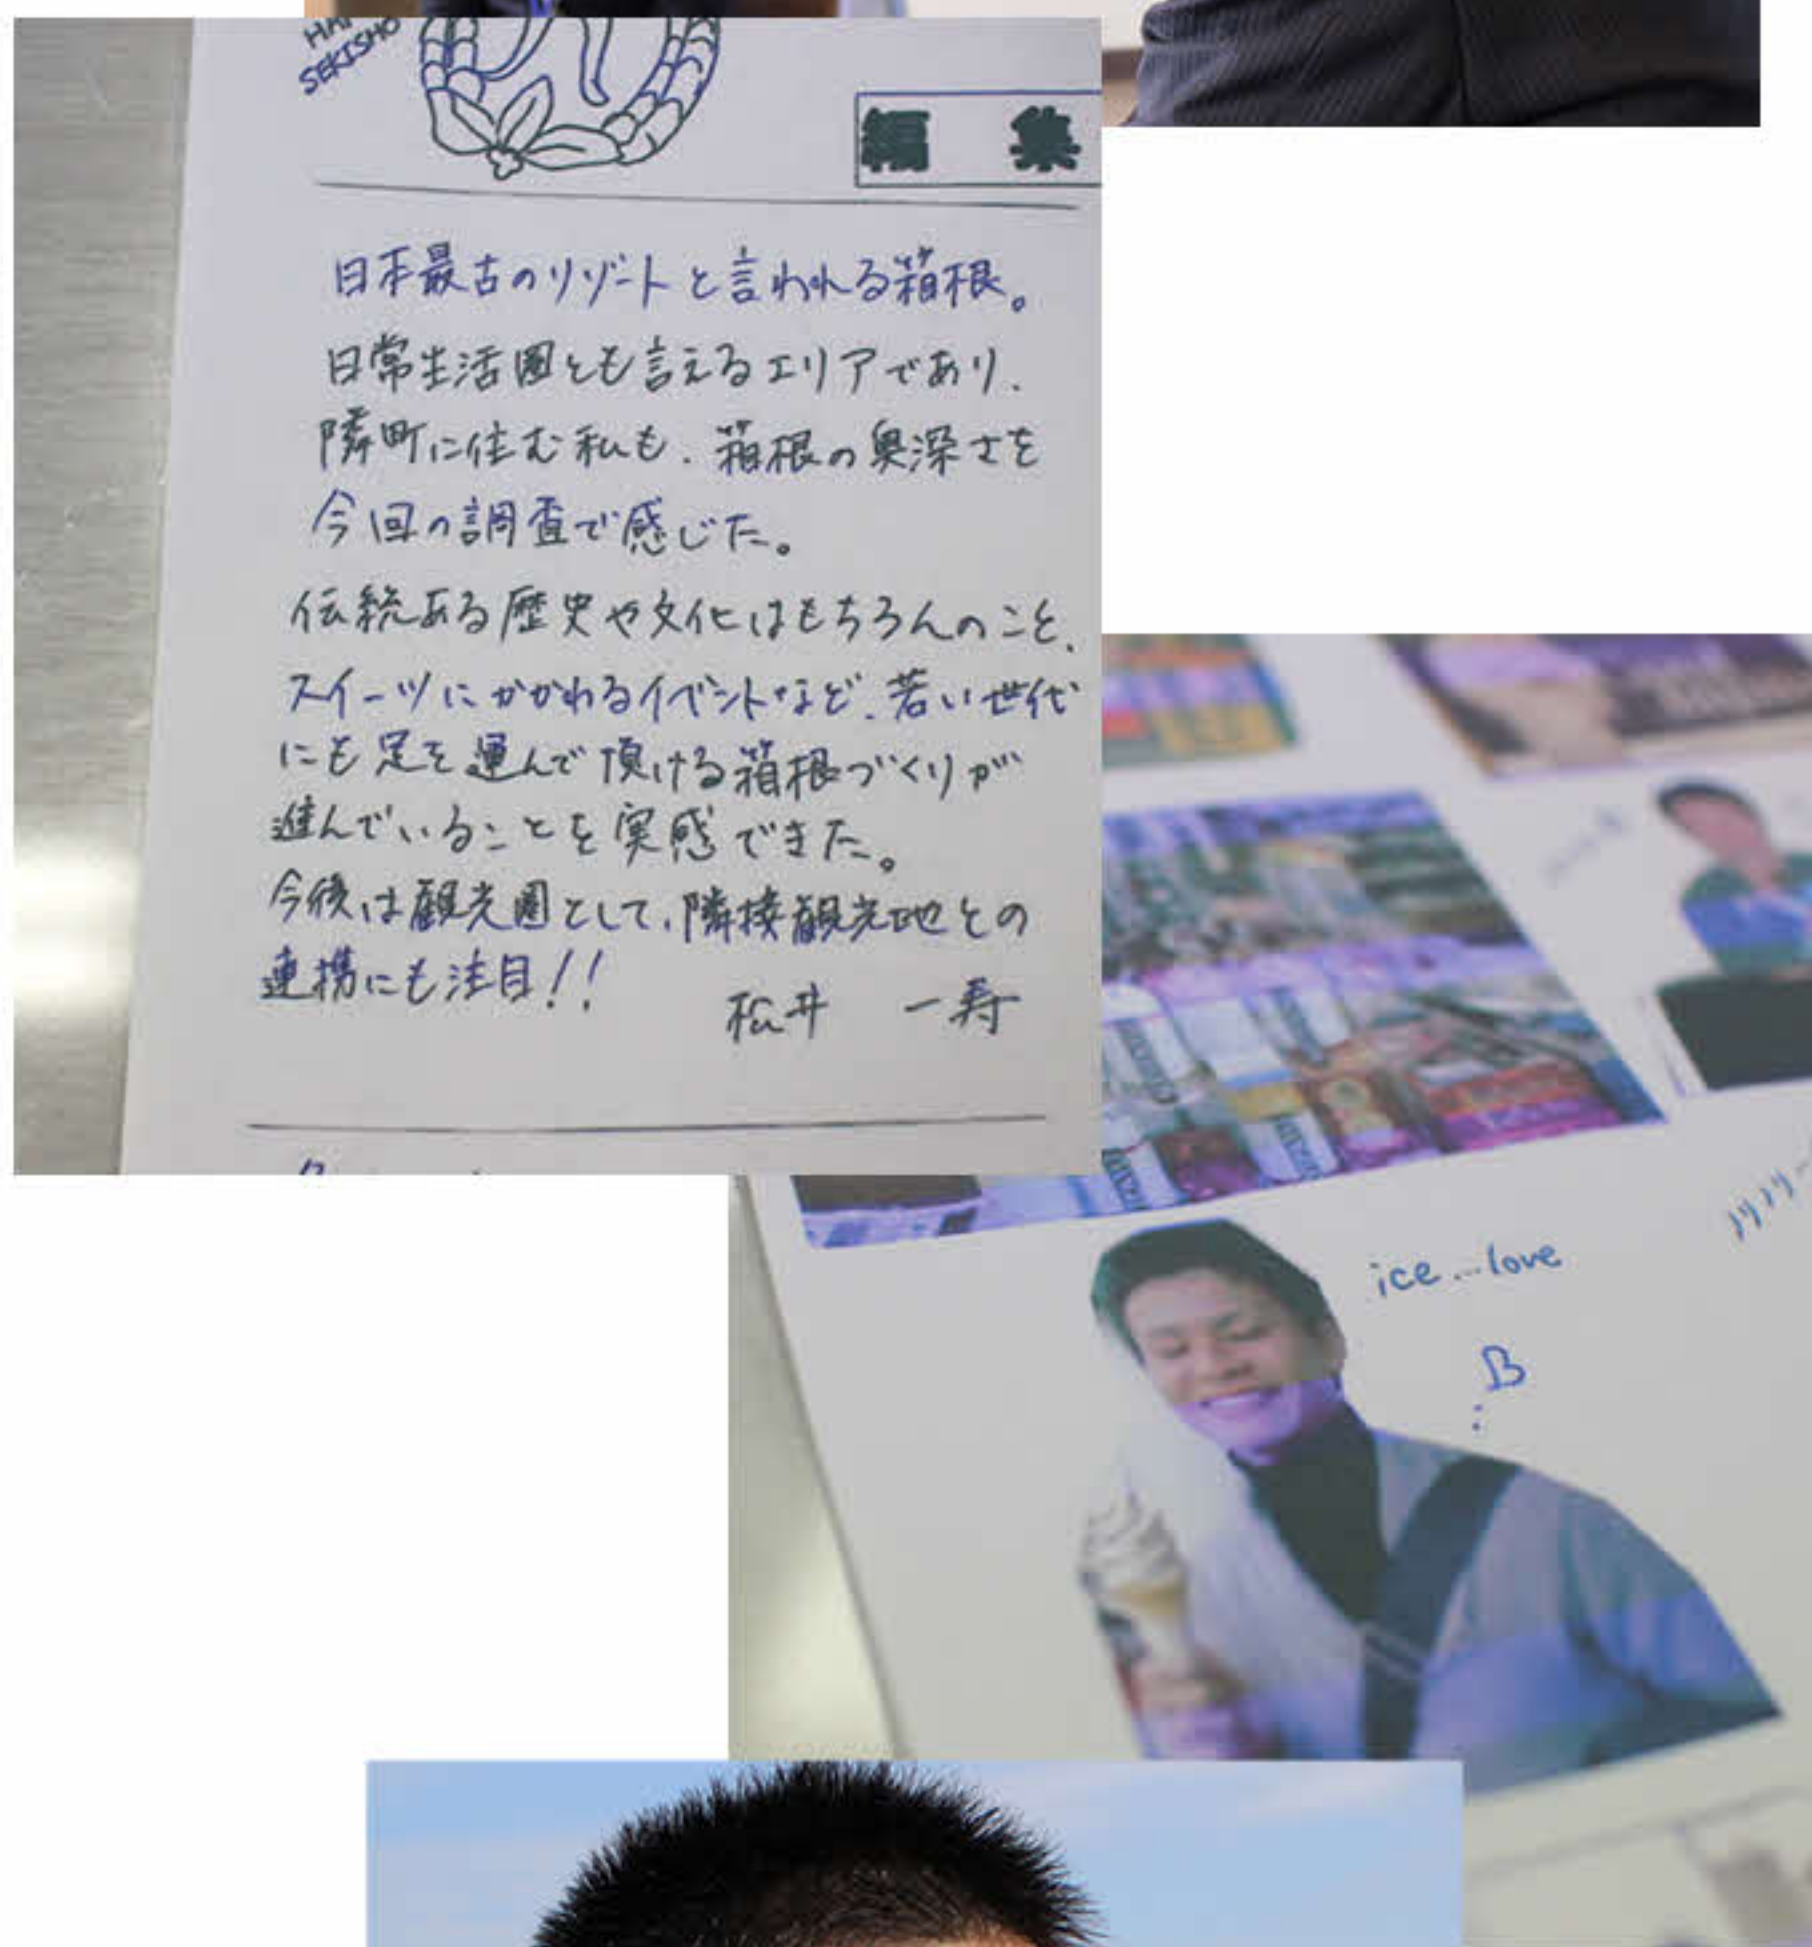 SEKISHO
編 集
日本最古のリゾートと言われる箱根。
日常生活圏とも言えるエリアであり、
隣町に住む私も、箱根の奥深さを
今回の調査で感じた。
伝統ある歴史や文化はもちろんのこと、
スイーツにかかわるイベントなど、若い世代
にも足を運んで頂ける箱根づくりが
進んでいることを実感できた。
今後は観光圏として、隣接観光地との
連携にも注目!!
松井 一寿
ice...love
B